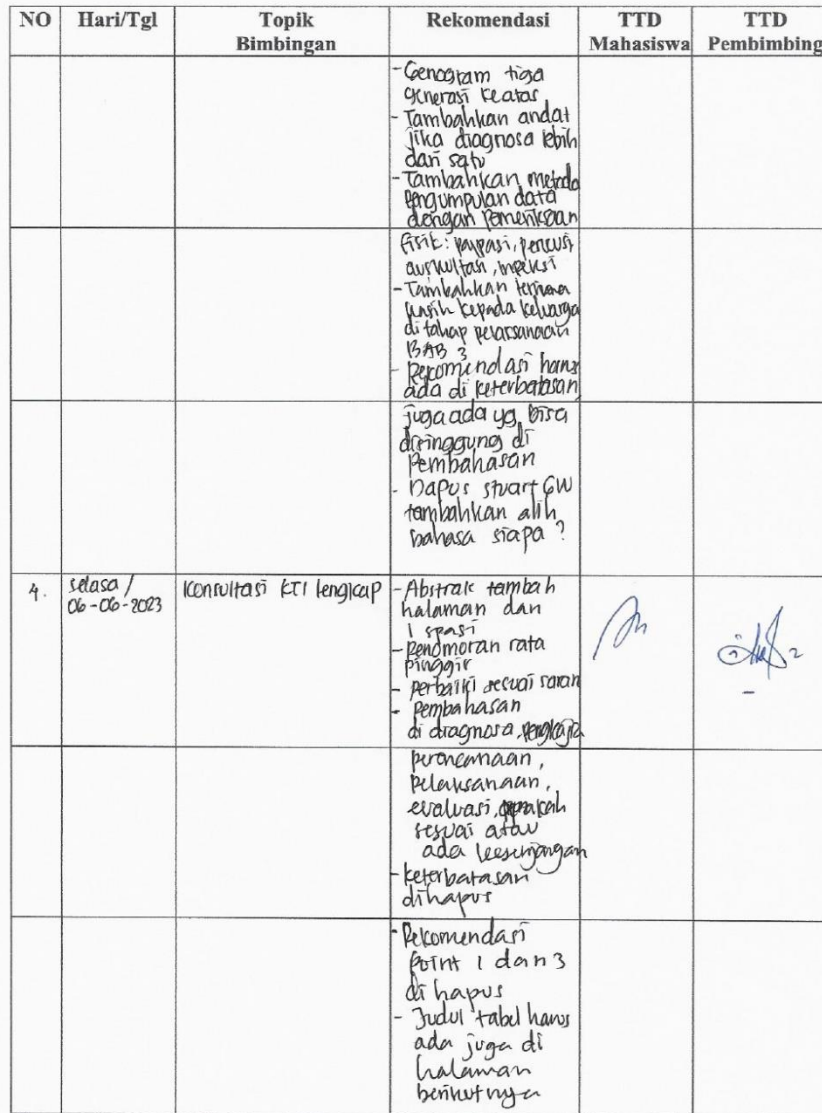 NO Hari/Tgl Topik Bimbingan Rekomendasi TTD Mahasiswa TTD Pembimbing
- Genogram tiga
generasi keatas
- Tambahkan andat
jika diagnosa lebih
dari satu
- Tambahkan metode
pengumpulan data
dengan pemeriksaan
fisik: palpasi, perkusi
auskultasi, inspeksi
- Tambahkan terima
kasih kepada keluarga
di tahap pelaksanaan
BAB 3
- Rekomendasi harus
ada di keterbatasan
juga ada yg bisa
disinggung di
Pembahasan
- Dapus stuart GW
tambahkan alih
bahasa siapa ?
4. selasa / Konsultasi KTI lengkap - Abstrak tambah
06-06-2023 halaman dan
1 spasi
- penomoran rata
pinggir
- perbaiki sesuai saran
- pembahasan
di diagnosa,
perencanaan,
pelaksanaan,
evaluasi, apakah
sesuai atau
ada kesenjangan
- keterbatasan
dihapus
- Rekomendasi
point 1 dan 3
di hapus
- Judul tabel harus
ada juga di
halaman
berikutnya